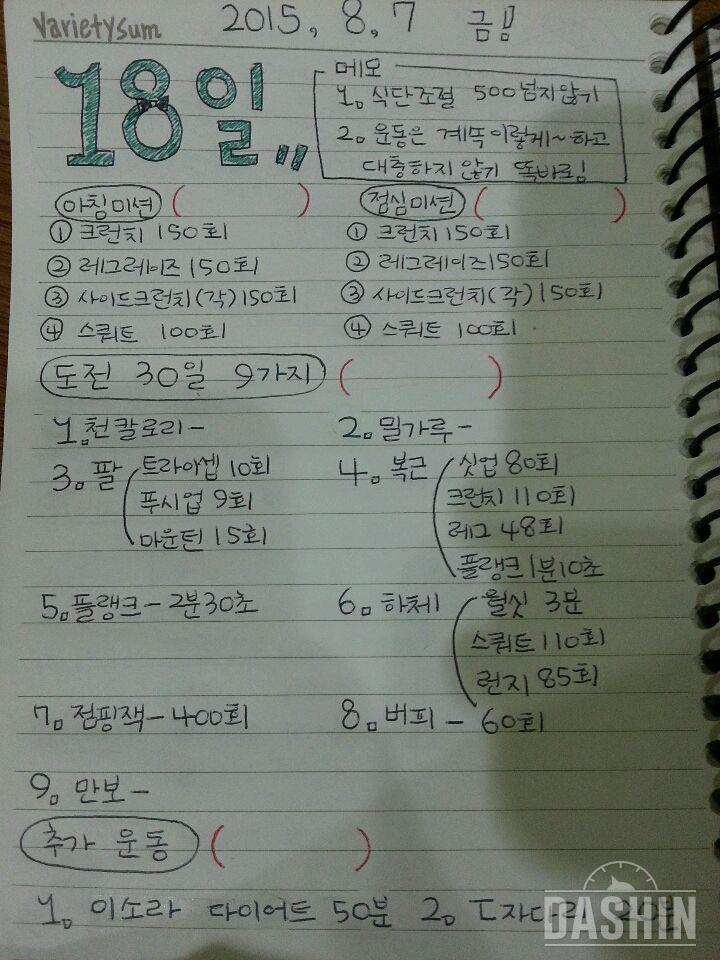 varietysum
2015. 8. 7 금!!
18일,,
메모
1. 식단조절 500넘지않기
2. 운동은 계쭉이렇게~하고
대충하지 않기 똑바로!
아침미션 ( )
① 크런치 150회
② 레그레이즈 150회
③ 사이드크런치(각)150회
④ 스쿼트 100회
점심미션 ( )
① 크런치 150회
② 레그레이즈150회
③ 사이드크런치(각)150회
④ 스쿼트 100회
도전 30일 9가지 ( )
1. 천칼로리-
2. 밀가루-
3. 팔 트라이셉 10회
푸시업 9회
마운턴 15회
4. 복근 싯업 80회
크런치 110회
레그 48회
플랭크1분10초
5. 플랭크-2분30초
6. 하체 월싯 3분
스쿼트 110회
런지 85회
7. 점핑잭-400회
8. 버피 - 60회
9. 만보-
추가 운동 ( )
1. 이소라 다이어트 50분 2. T자다리 20분
DASHIN